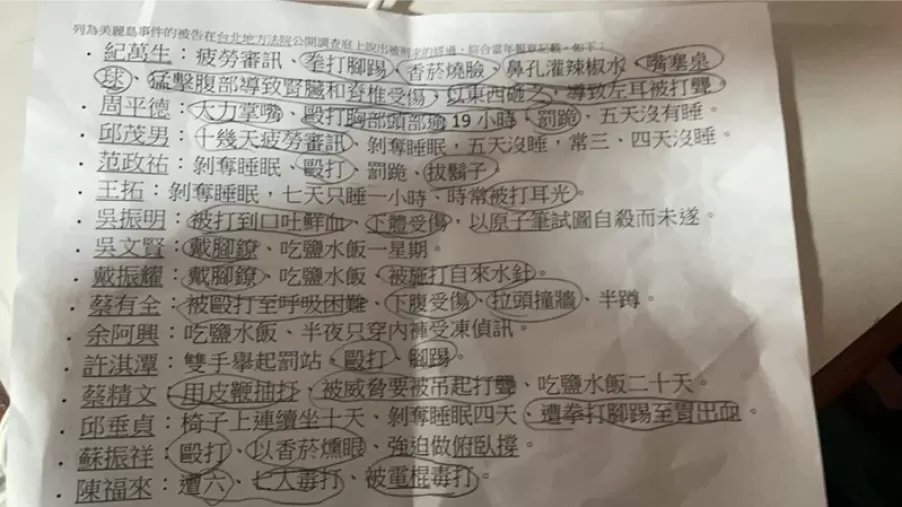 列為美麗島事件的被告在台北地方法院公開調查庭上說出被刑求的經過，綜合當年報章記載，如下：
· 紀萬生：疲勞審訊、拳打腳踢、香菸燒臉、鼻孔灌辣椒水、嘴塞桌
球、猛擊腹部導致腎臟和脊椎受傷，以東西砸之，導致左耳被打聾。
· 周平德：大力掌嘴、毆打胸部頭部逾 19 小時、罰跪、五天沒有睡。
· 邱茂男：十幾天疲勞審訊、剝奪睡眠，五天沒睡，常三、四天沒睡。
· 范政祐：剝奪睡眠、毆打、罰跪、拔鬍子。
· 王拓：剝奪睡眠，七天只睡一小時、時常被打耳光。
· 吳振明：被打到口吐鮮血、下體受傷，以原子筆試圖自殺而未遂。
· 吳文賢：戴腳鐐、吃鹽水飯一星期。
· 戴振耀：戴腳鐐、吃鹽水飯、被施打自來水針。
· 蔡有全：被毆打至呼吸困難、下腹受傷、拉頭撞牆、半蹲。
· 余阿興：吃鹽水飯、半夜只穿內褲受凍偵訊。
· 許淇潭：雙手舉起罰站、毆打、腳踢。
· 蔡精文：用皮鞭抽打、被威脅要被吊起打聾、吃鹽水飯二十天。
· 邱垂貞：椅子上連續坐十天、剝奪睡眠四天、遭拳打腳踢至胃出血。
· 蘇振祥：毆打、以香菸燻眼、強迫做俯臥撐。
· 陳福來：遭六、七人毒打、被電棍毒打。